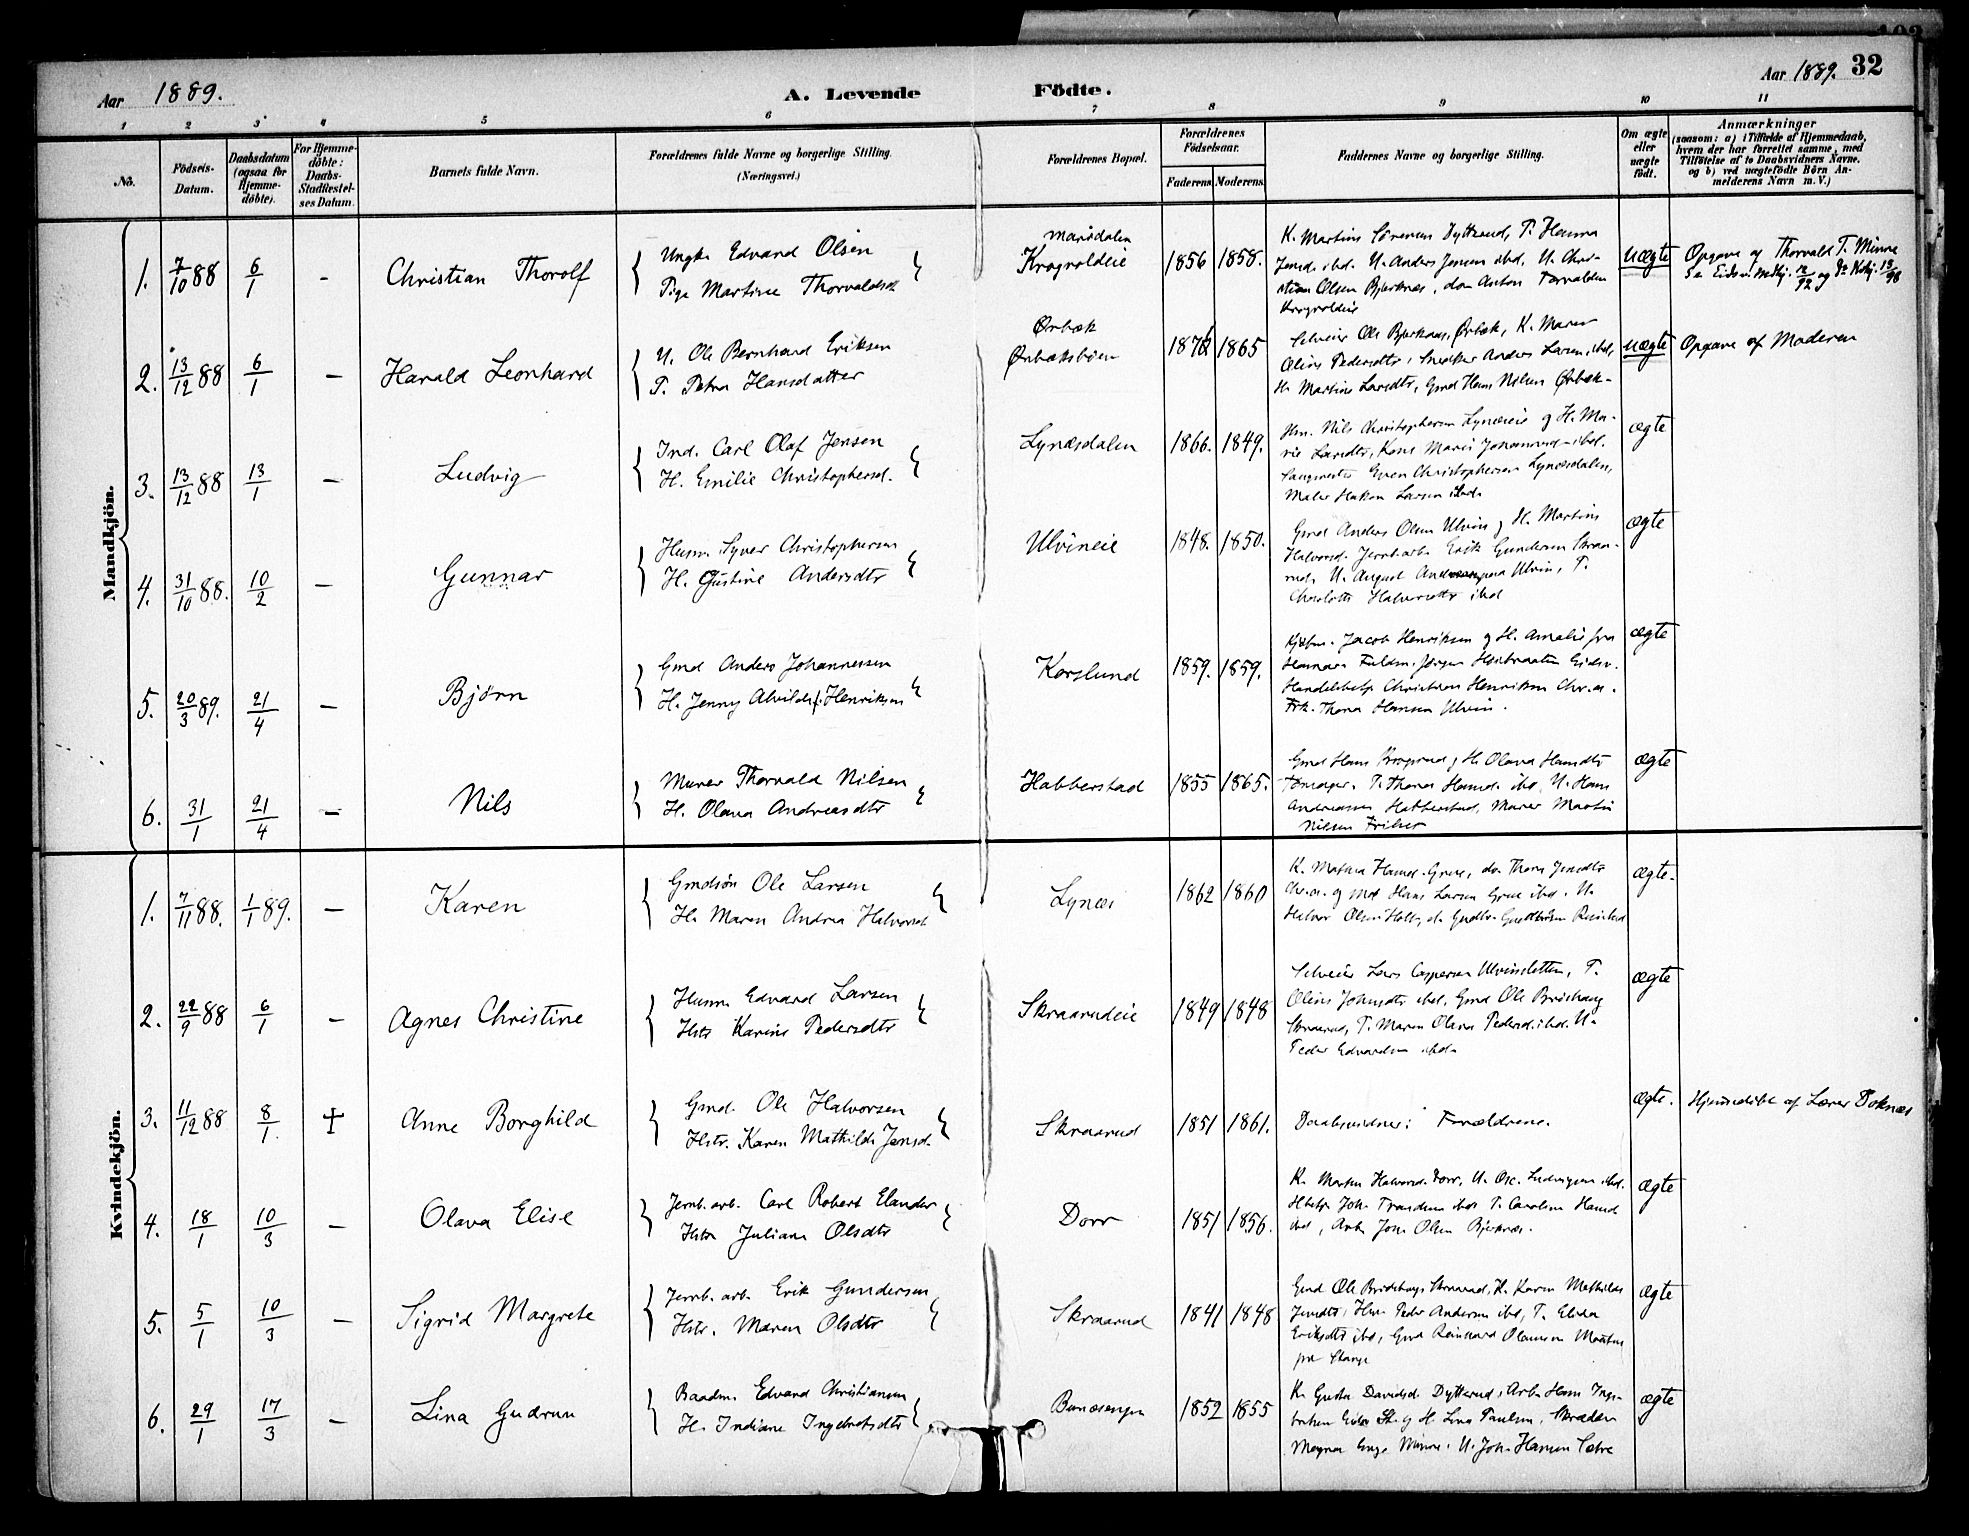 Aar 1889.
A. Levende Födte.
Aar 1889. 32
1 2 3 4 5 6 7 8 9 10 11
No.
Födsels-Datum.
Daabsdatum (ogsaa for Hjemme-döbte).
For Hjemme-döbte: Daabs-Stadfæstel-ses Datum.
Barnets fulde Navn.
Forældrenes fulde Navne og borgerlige Stilling. (Næringsvei.)
Forældrenes Bopæl.
Forældrenes Födselsaar.
Faderens. Moderens.
Faddernes Navne og borgerlige Stilling.
Om ægte eller uægte födt.
Anmærkninger
(saasom: a) i Tilfælde af Hjemmedaab, hvem der har forrettet samme, med Tilföielse af to Daabsvidners Navne, og b) ved uægtefödte Börn An-melderens Navn m. V.)
Mandkjön.
1. 7/10 88 6/1 - Christian Thorolf
Ungk. Edvard Olsen
Pige Martine Thorvaldsdt
Marisdalen
Krogvoldeie 1856 1858.
K. Martine Sörensen Dytterud, P. Hanna
Jensd. ibd. U. Anders Jensen ibd. U. Chri-
stian Olsen Bjerknæs, do Anton
Krogvoldeie
uægte
Opgave af Thorvald T. Minne
2. 13/12 88 6/1 - Harald Leonhard
U. Ole Bernhard Eriksen
P. Petra Hansdatter
Ørbæk
Ørbæksböen 1865
Selveier Ole Bjerknæs, Ørbæk, K. Maren
Oline Pedersdtr, Snedker Anders Larsen ibd,
H. Martine Larsdtr, Gmd Hans Nilsen Ørbæk-
uægte
Opgave af Moderen
3. 13/12 88 13/1 - Ludvig
Ind. Carl Olaf Jensen
H. Emilie Christophersd.
Lynæsdalen 1866. 1849.
Hm. Nils Christophersen Lynæseie og H. Ma-
rie Larsdtr, Kone Marie Johannesd. ibd.
Sangmester Even Christophersen Lynæsdalen,
Maler Hakon Larsen ibd.
ægte
4. 31/10 88. 10/2 - Gunnar
Husm. Syver Christophersen
H. Gustine Andersdtr
Ulvineie 1848. 1850.
Gmd Anders Olsen Ulvin og H. Martine
Halvorsd. Jernb.arb. Erik Gundersen Skraa-
rud, U. August Ulvin, P.
Charlotte Halvorsdtr ibd
ægte
5. 20/3 89. 21/4 - Björn
Gmd Anders Johannessen
H. Jenny Alvilde f. Henriksen
Korslund 1859. 1859.
Kjöbm. Jacob Henriksen og H. Amalie fra
Hamar Fuldm. Jörgen Eidsv.
Handelsbetj. Christian Henriksen Chr.a.
Frk. Thora Hansen Ulvin.
ægte
6. 31/1 21/4 - Nils
Murer Thorvald Nilsen
H. Olava Andreasdtr
Habberstad 1855 1865.
Gmd Hans og H. Olava Hansdtr
P. Thora Hansd. ibd U. Hans
Andreassen Habberstad, Murer Martin
Nilsen
ægte
Kvindekjön.
1. 7/11 88. 1/1 89. - Karen
Gmdsön Ole Larsen
H. Maren Andrea Halvorsdt
Lynæs 1862 1860
K. Mathea Hansd. Grue, do Thora Jensdtr
Chr.a. og Hans Larsen Grue ibd. U.
Halvor Olsen Holt,
ægte.
2. 22/9 88 6/1 - Agnes Christine
Husm. Edvard Larsen
Hstr Karine Pedersdtr
Skraarudeie 1849 1848
Selveier Lars Caspersen Ulvinsletten, P.
Oline Johnsdtr ibd, Gmd Ole Brödshaug
Skraarud, P. Maren Olava Pedersd. ibd. U.
Peder Edvardsen ibd.
ægte
3. 11/12 88 8/1. † Anne Borghild
Gmd. Ole Halvorsen
Hstr. Karen Mathilde Jensd.
Skraarud 1851 1861.
Daabsvidner: Forældrene.
ægte.
Hjemmedöbt af Lærer Doknæs
4. 18/1 10/3 - Olava Elise
Jernb. arb. Carl Robert Elander
Hstr Juliane Olsdtr
Dorr 1851 1856.
K. Marten Halvorsd. Dorr, U. Osc. Ludvigsen ibd.
Joh. Trandum ibd P. Caroline Hansd
ibd, Arb. Joh. Olsen Bjerknæs.
ægte
5. 5/1 10/3 - Sigrid Margrete
Jernb. arb. Erik Gundersen
Hstr. Maren Olsdtr
Skraarud 1841 1848
Gmd Ole Brödshaug Skraarud, K. Karen Mathilde
Jensdtr, Hm. Peder Andersen ibd, P. Elida
Eriksdtr ibd, Gmd Reinhard Olaussen
fra Stange
ægte
6. 29/1 17/3 - Lina Gudrun
Baadm. Edvard Christiansen
H. Indiane Ingebretsdtr
Bunæsengen 1852 1855
K. Gusta Davidsd. Dytterud, Arb. Hans Inge-
bretsen Eidsv. St. og H. Lina Paulsen, Skrædder
Magnus Minne. U. Joh. Hansen Sætre
ægte